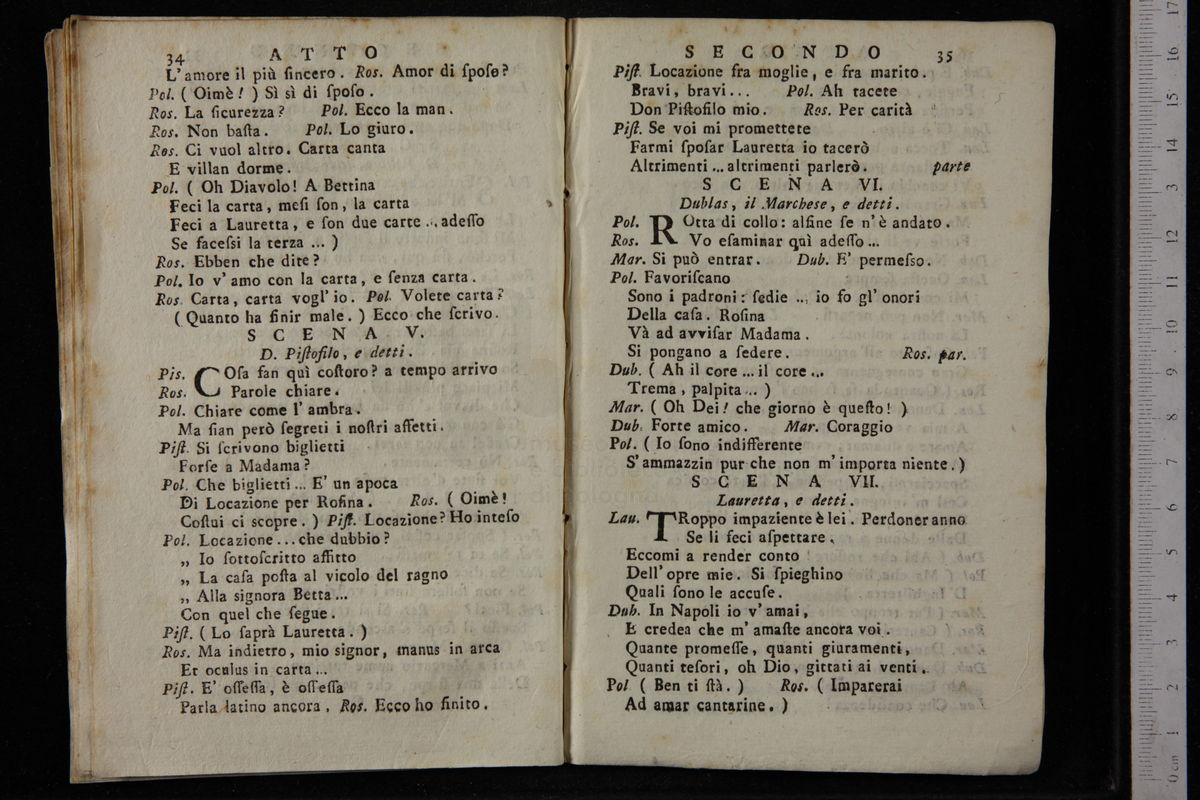 34 A T T O
L' amore il più ſincero. Ros. Amor di ſpoſo?
Pol. ( Oimè! ) Sì sì di ſpoſo.
Ros. La ſicurezza? Pol. Ecco la man.
Ros. Non baſta. Pol. Lo giuro.
Ros. Ci vuol altro. Carta canta
E villan dorme.
Pol. ( Oh Diavolo! A Bettina
Feci la carta, meſi ſon, la carta
Feci a Lauretta, e ſon due carte ... adeſſo
Se faceſsi la terza ... )
Ros. Ebben che dite?
Pol. Io v' amo con la carta, e ſenza carta.
Ros. Carta, carta vogl' io. Pol. Volete carta?
( Quanto ha finir male. ) Ecco che ſcrivo.
S C E N A V.
D. Piſtofilo, e detti.
Pis. COſa fan quì coſtoro? a tempo arrivo
Ros. Parole chiare.
Pol. Chiare come l' ambra.
Ma ſian però ſegreti i noſtri affetti.
Piſt. Si ſcrivono biglietti
Forſe a Madama?
Pol. Che biglietti ... E' un apoca
Di Locazione per Roſina. Ros. ( Oimè!
Coſtui ci scopre. ) Piſt. Locazione? Ho inteſo
Pol. Locazione ... che dubbio?
„ Io ſottoſcritto affitto
„ La caſa poſta al vicolo del ragno
„ Alla signora Betta ...
Con quel che ſegue.
Piſt. ( Lo ſaprà Lauretta. )
Ros. Ma indietro, mio signor, manus in arca
Et oculus in carta ...
Piſt. E' offeſſa, è offeſſa
Parla latino ancora, Ros. Ecco ho finito.
S E C O N D O 35
Piſt. Locazione fra moglie, e fra marito.
Bravi, bravi ... Pol. Ah tacete
Don Piſtofilo mio. Ros. Per carità
Piſt. Se voi mi promettete
Farmi ſpoſar Lauretta io tacerò
Altrimenti ... altrimenti parlerò. parte
S C E N A VI.
Dublas, il Marchese, e detti.
Pol. ROtta di collo: alfine ſe n' è andato.
Ros. Vo eſaminar quì adeſſo ...
Mar. Si può entrar. Dub. E' permeſso.
Pol. Favoriſcano
Sono i padroni: ſedie ... io fo gl' onori
Della caſa. Roſina
Và ad avviſar Madama.
Si pongano a ſedere. Ros. par.
Dub. ( Ah il core ... il core ...
Trema, palpita ... )
Mar. ( Oh Dei! che giorno è queſto! )
Dub. Forte amico. Mar. Coraggio
Pol. ( Io ſono indifferente
S' ammazzin pur che non m' importa niente. )
S C E N A VII.
Lauretta, e detti.
Lau. TRoppo impaziente è lei. Perdoneranno
Se li feci aſpettare.
Eccomi a render conto
Dell' opre mie. Si ſpieghino
Quali ſono le accuſe.
Dub. In Napoli io v' amai,
E credea che m' amaſte ancora voi.
Quante promeſſe, quanti giuramenti,
Quanti teſori, oh Dio, gittati ai venti.
Pol ( Ben ti ſtà. ) Ros. ( Imparerai
Ad amar cantarine. )